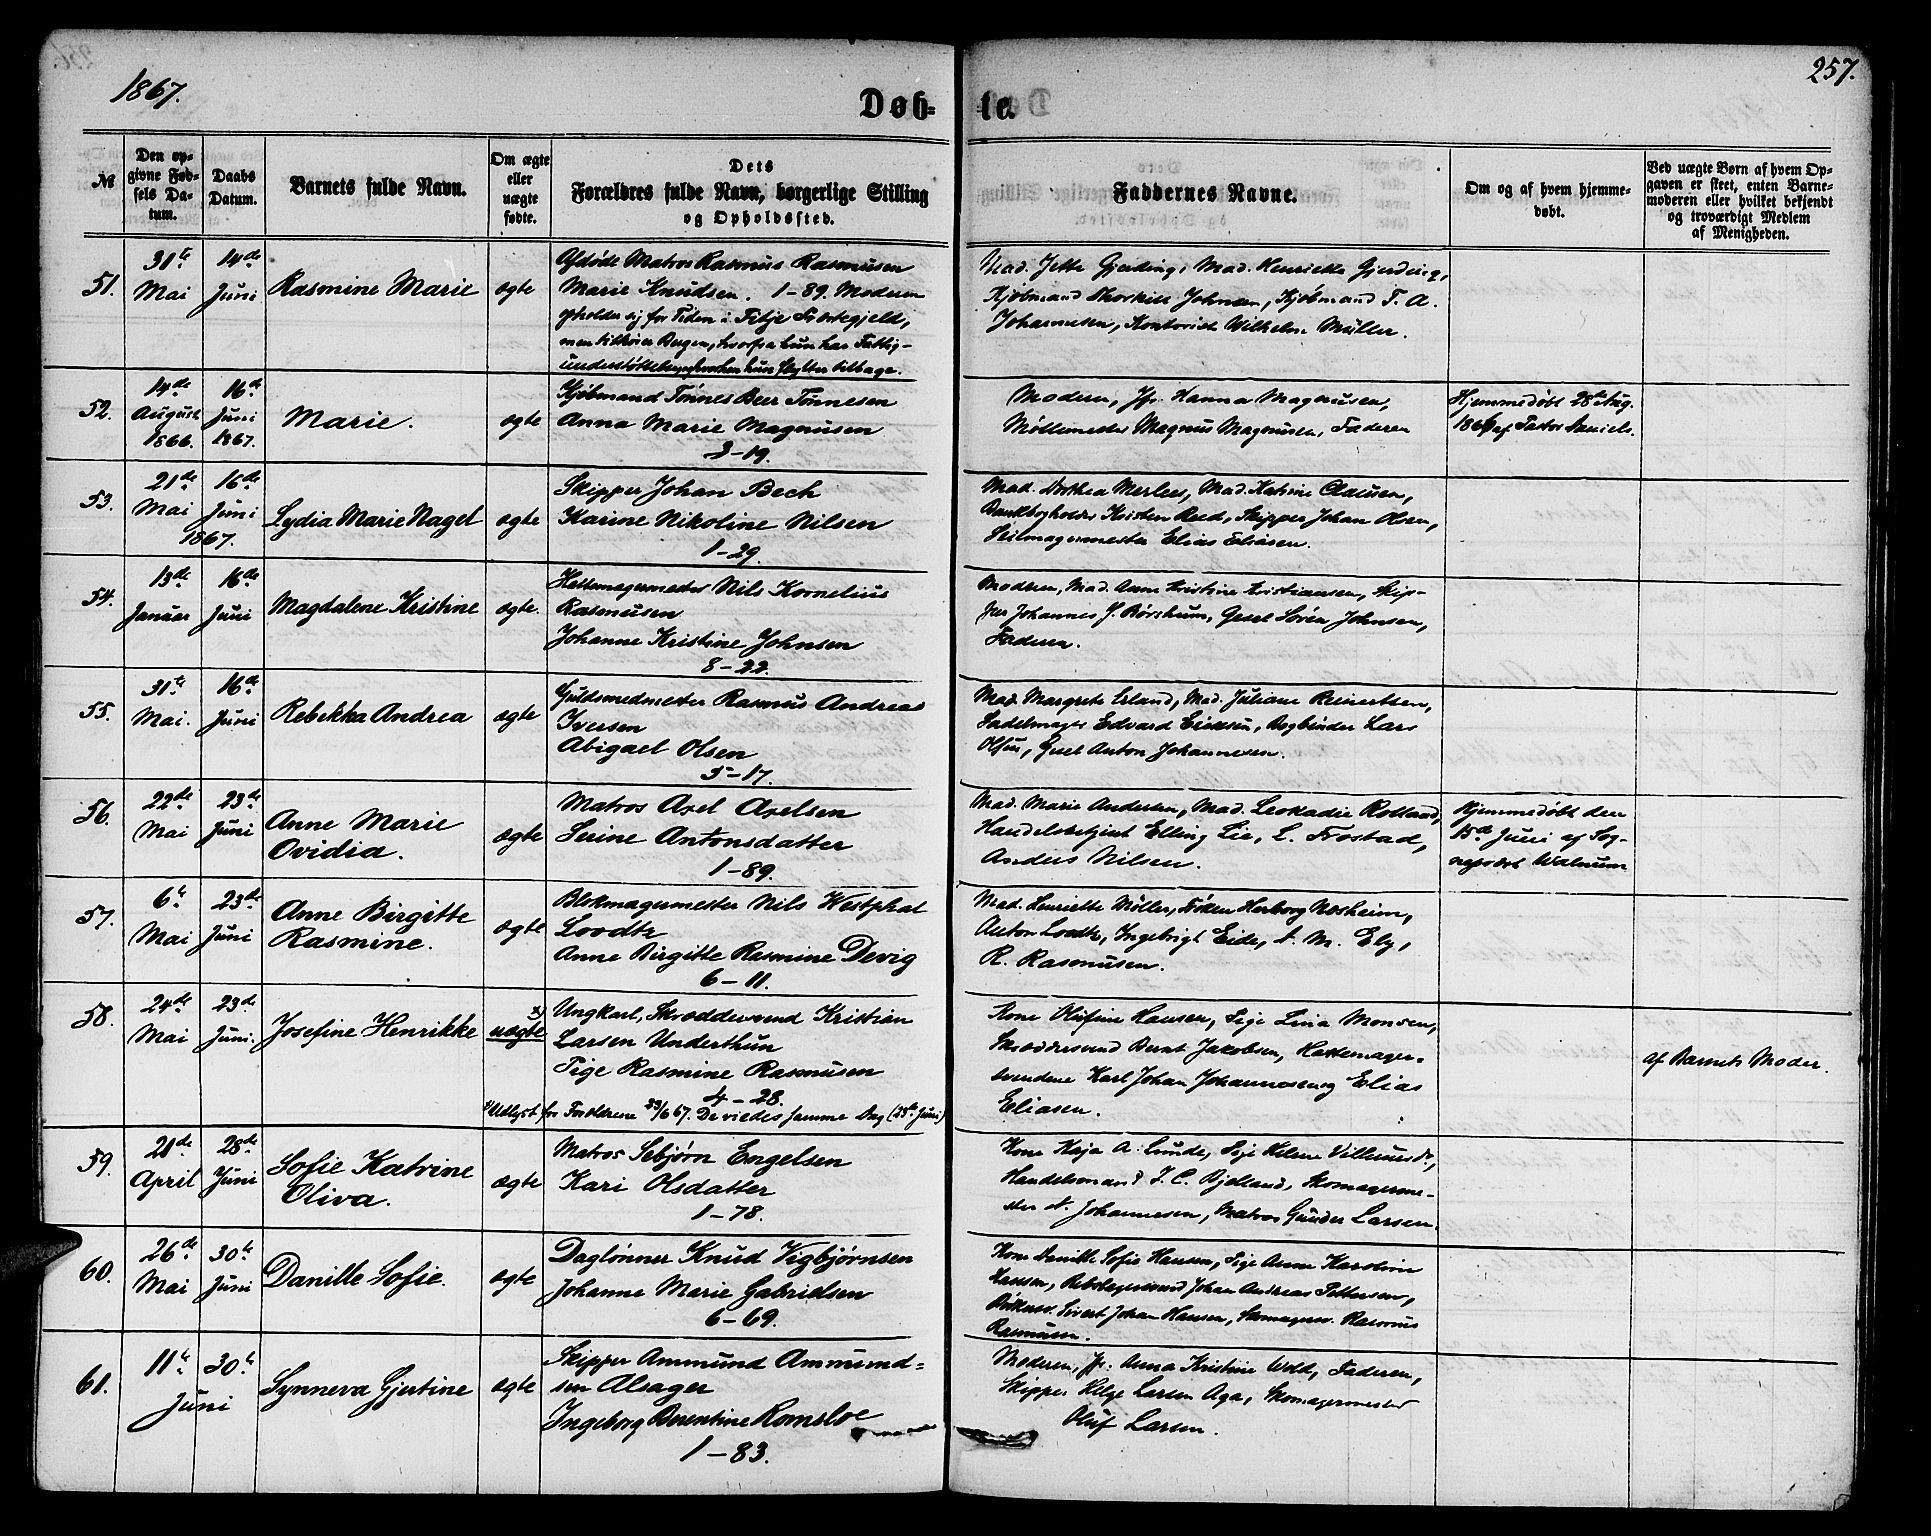 1867.
Døb-
te.
257.
№
Den op-
givne Fød-
sels Da-
tum.
Daabs
Datum.
Barnets fulde Navn.
Om ægte
eller
uægte
fødte.
Dets
Forældres fulde Navn, borgerlige Stilling
og Opholdssted.
Faddernes Navne.
Om og af hvem hjemme-
døbt.
Ved uægte Børn af hvem Op-
gaven er skeet, enten Barne-
moderen eller hvilket bekjendt
og troværdigt Medlem
af Menigheden.
51.
31te
Mai
14de
Juni
Rasmine Marie
ægte
Afdøde Matros Rasmus Rasmusen
Marie Knudsen. 1-89. Moderen
opholder sig for Tiden i Fitje Præstegjeld,
men tilhører Bergen, hvorfra hun har Fattig-
hun flytter tilbage.
Mad. Jette Gjerding, Mad. Henriette Gjerding,
Kjøbmand Thorkild Johnsen, Kjøbmand T. A.
Johannesen, Kontorist Wilhelm Müller.
52.
14de
August
1866.
16de
Juni
1867.
Marie.
ægte
Kjøbmand Tønnes Beer Tønnesen
Anna Marie Magnusen
3-19.
Moderen, Jfr. Hanna Magnusen,
Møllemester Magnus Magnusen, Faderen
Hjemmedøbt 28de Aug.
1866 af Pastor Daniels.
53.
21de
Mai
16de
Juni
1867.
Lydia Marie Nagel
ægte
Skipper Johan Bech
Karine Nikoline Nilsen
1-29.
Mad. Dorthea Merlees, Mad. Katrine Clausen,
Bankbogholder Kristen Reed, Skipper Johan Olsen,
Seilmagermester Elias Eliasen.
54.
13de
Januar
16de
Juni
Magdalene Kristine
ægte.
Hattemagermester Nils Kornelius
Rasmusen
Johanne Kristine Johnsen
8-22.
Moderen, Mad. Anne Kristine Kristiansen, Skip-
per Johannes J. Børsheim, Gesel Søren Johnsen,
Faderen.
55.
31te
Mai.
16de
Juni
Rebekka Andrea
ægte
Guldsmedmester Rasmus Andreas
Iversen
Abigael Olsen
5-17.
Mad. Margrete Erland, Mad. Juliane Reinertsen,
Sadelmager Edvard Eriksen, Bogbinder Lars
Olsen, Gesel Anton Johannesen.
56.
22de
Mai
23de
Juni
Anne Marie
Ovidia.
ægte
Matros Axel Axelsen
Serine Antonsdatter
1-89.
Mad. Marie Andersen, Mad. Leokadie Rolland,
Handelsbetjent Elling Lie, L. Frostad,
Anders Nilsen.
Hjemmedøbt den
15de Juni af Sog-
nepræst Walnum
57.
6te
Mai
23de
Juni
Anne Birgitte
Rasmine.
ægte
Blokmagermester Nils Westphal
Loodtz
Anne Birgitte Rasmine Devig
6-11.
Mad. Henriette Møller, Frøken Herborg Næsheim,
Anton Loodtz, Ingebrigt Eide, A. M. Ely,
R. Rasmusen.
58.
24de
Mai
23de
Juni.
Josefine Henrikke
x)
uægte
Ungkarl, Skræddersvend Kristian
Larsen Underthun
Pige Rasmine Rasmusen
4-28.
x) Udlyst for Forældrene 23/6 67. De viedes samme Dag (23de Juni)
Kone Olufine Hansen, Pige Lina Monsen,
Skræddersvend Bernt Jakobsen, Hattemager-
svendene Karl Johan Johannesen og Elias
Eliasen.
af Barnets Moder.
59.
21de
April
28de
Juni
Sofie Katrine
Oliva.
ægte
Matros Sebjørn Engelsen
Kari Olsdatter
1-78.
Kone Kaja A. Lunde, Pige Helene Villumsdr.,
Handelsmand J. C. Bjelland, Skomagerme-
ster A. Johannesen, Matros Gunder Larsen.
60.
26de
Mai
30te
Juni
Danille Sofie.
ægte
Daglønner Knud Vigbjørnsen
Johanne Marie Gabrielsen
6-69.
Kone Danille Sofie Hansen, Pige Anne Karoline
Hansen, Rebslagersvend Johan Andreas Pettersen,
Bødkersv. Sivert Johan Hansen, Skomagersv. Rasmus
Rasmusen.
61.
11te
30te
Juni
Synneva Gjertine
ægte
Skipper Ammund Ammund-
sen Alsager
Ingeborg Berentine Romsloe
1-83.
Moderen, Jfr. Anna Kristine Wold, Faderen,
Skipper Helge Larsen Aga, Skomagermester
Oluf Larsen.